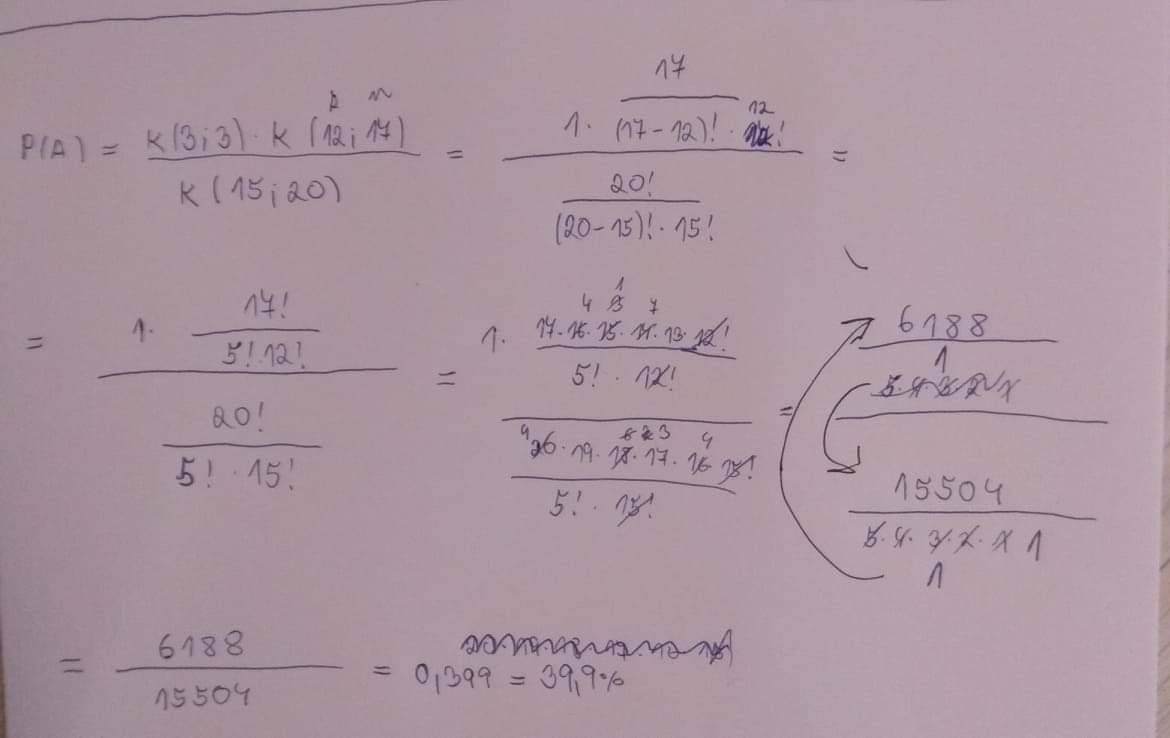 p n
P(A) = K(3;3) · K(12;17) / K(15;20) = 1 · 17 / (17-12)! · 12! / 20! / (20-15)! · 15! =
= 1 · 17! / 5! · 12! / 20! / 5! · 15! = 1 · 17·16·15·14·13·12! / 5! · 12! / 20·19·18·17·16·15! / 5! · 15! = 6188 / 1 / 15504 / 5·4·3·2·1 1
= 6188 / 15504 = 0,399 = 39,9%